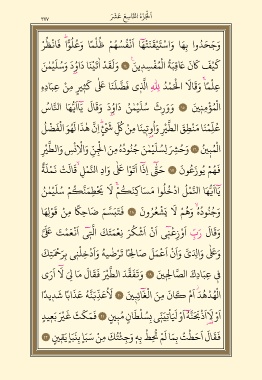 الجزء التاسع عشر
٣٧٧
وَجَحَدُوا بِهَا وَاسْتَيْقَنَتْهَٓا اَنْفُسُهُمْ ظُلْمًا وَعُلُوًّاۜ فَانْظُرْ
كَيْفَ كَانَ عَاقِبَةُ الْمُفْسِد۪ينَ ۟ وَلَقَدْ اٰتَيْنَا دَاوُ۫دَ وَسُلَيْمٰنَ
عِلْمًاۚ وَقَالَا الْحَمْدُ لِلّٰهِ الَّذ۪ي فَضَّلَنَا عَلٰى كَث۪يرٍ مِنْ عِبَادِهِ
الْمُؤْمِن۪ينَ ١٥ وَوَرِثَ سُلَيْمٰنُ دَاوُ۫دَ وَقَالَ يَٓا اَيُّهَا النَّاسُ
عُلِّمْنَا مَنْطِقَ الطَّيْرِ وَاُو۫ت۪ينَا مِنْ كُلِّ شَيْءٍۜ اِنَّ هٰذَا لَهُوَ الْفَضْلُ
الْمُب۪ينُ ١٦ وَحُشِرَ لِسُلَيْمٰنَ جُنُودُهُ مِنَ الْجِنِّ وَالْاِنْسِ وَالطَّيْرِ
فَهُمْ يُوزَعُونَ ١٧ حَتّٰٓى اِذَٓا اَتَوْا عَلٰى وَادِ النَّمْلِۙ قَالَتْ نَمْلَةٌ
يَٓا اَيُّهَا النَّمْلُ ادْخُلُوا مَسَاكِنَكُمْۚ لَا يَحْطِمَنَّكُمْ سُلَيْمٰنُ
وَجُنُودُهُۙ وَهُمْ لَا يَشْعُرُونَ ١٨ فَتَبَسَّمَ ضَاحِكًا مِنْ قَوْلِهَا
وَقَالَ رَبِّ اَوْزِعْن۪ٓي اَنْ اَشْكُرَ نِعْمَتَكَ الَّت۪ٓي اَنْعَمْتَ عَلَيَّ
وَعَلٰى وَالِدَيَّ وَاَنْ اَعْمَلَ صَالِحًا تَرْضٰيهُ وَاَدْخِلْن۪ي بِرَحْمَتِكَ
ف۪ي عِبَادِكَ الصَّالِح۪ينَ ١٩ وَتَفَقَّدَ الطَّيْرَ فَقَالَ مَا لِيَ لَٓا اَرَى
الْهُدْهُدَۘ اَمْ كَانَ مِنَ الْغَٓائِب۪ينَ ٢٠ لَاُعَذِّبَنَّهُ عَذَابًا شَد۪يدًا
اَوْ لَا۬اَذْبَحَنَّهُٓ اَوْ لَيَأْتِيَنّ۪ي بِسُلْطَانٍ مُب۪ينٍ ٢١ فَمَكَثَ غَيْرَ بَع۪يدٍ
فَقَالَ اَحَطْتُ بِمَا لَمْ تُحِطْ بِه۪ وَجِئْتُكَ مِنْ سَبَأٍ بِنَبَأٍ يَق۪ينٍ ٢٢